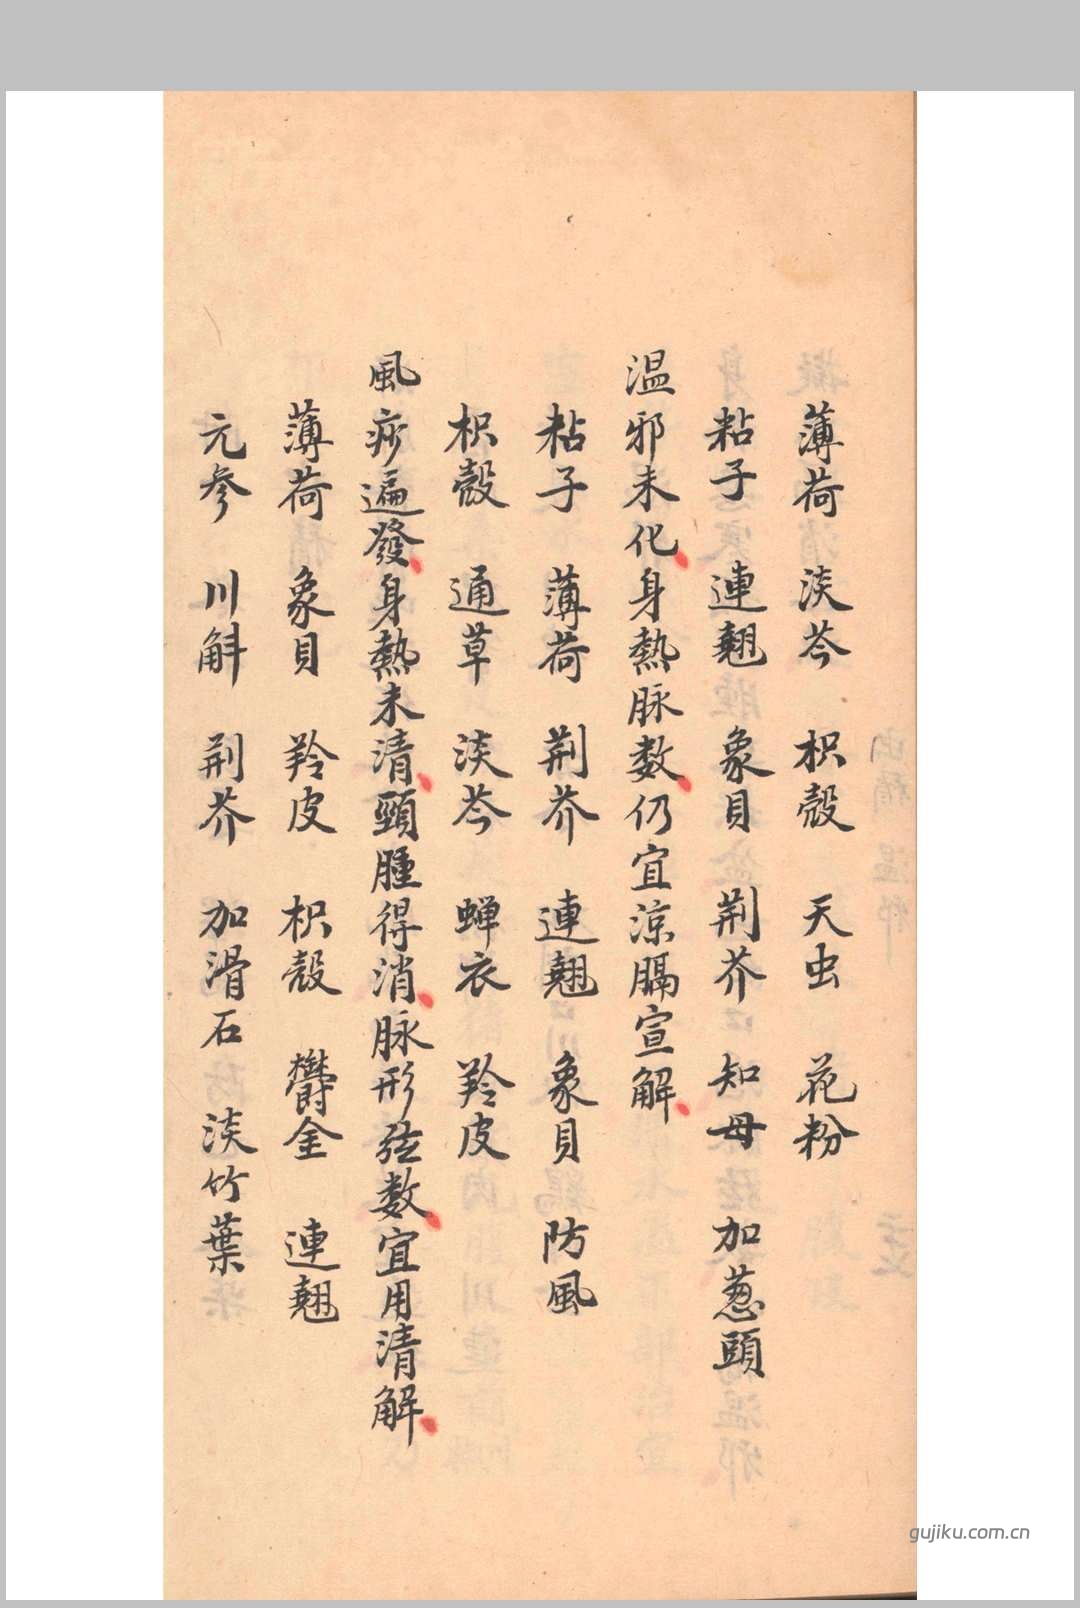 薄荷 淡芩 枳殼 天虫 花粉
粘子 連翹 象貝 荆芥 知母 加葱頭
温邪未化身熱脉数仍宜凉膈宣解
粘子 薄荷 荆芥 連翹 象貝 防風
枳殼 通草 淡芩 蝉衣 羚皮
風痧遍發身熱未清頸腫得消脉形弦数宜用清解
薄荷 象貝 羚皮 枳殼 欝金 連翹
元參 川斛 荆芥 加滑石 淡竹葉
gujiku.com.cn